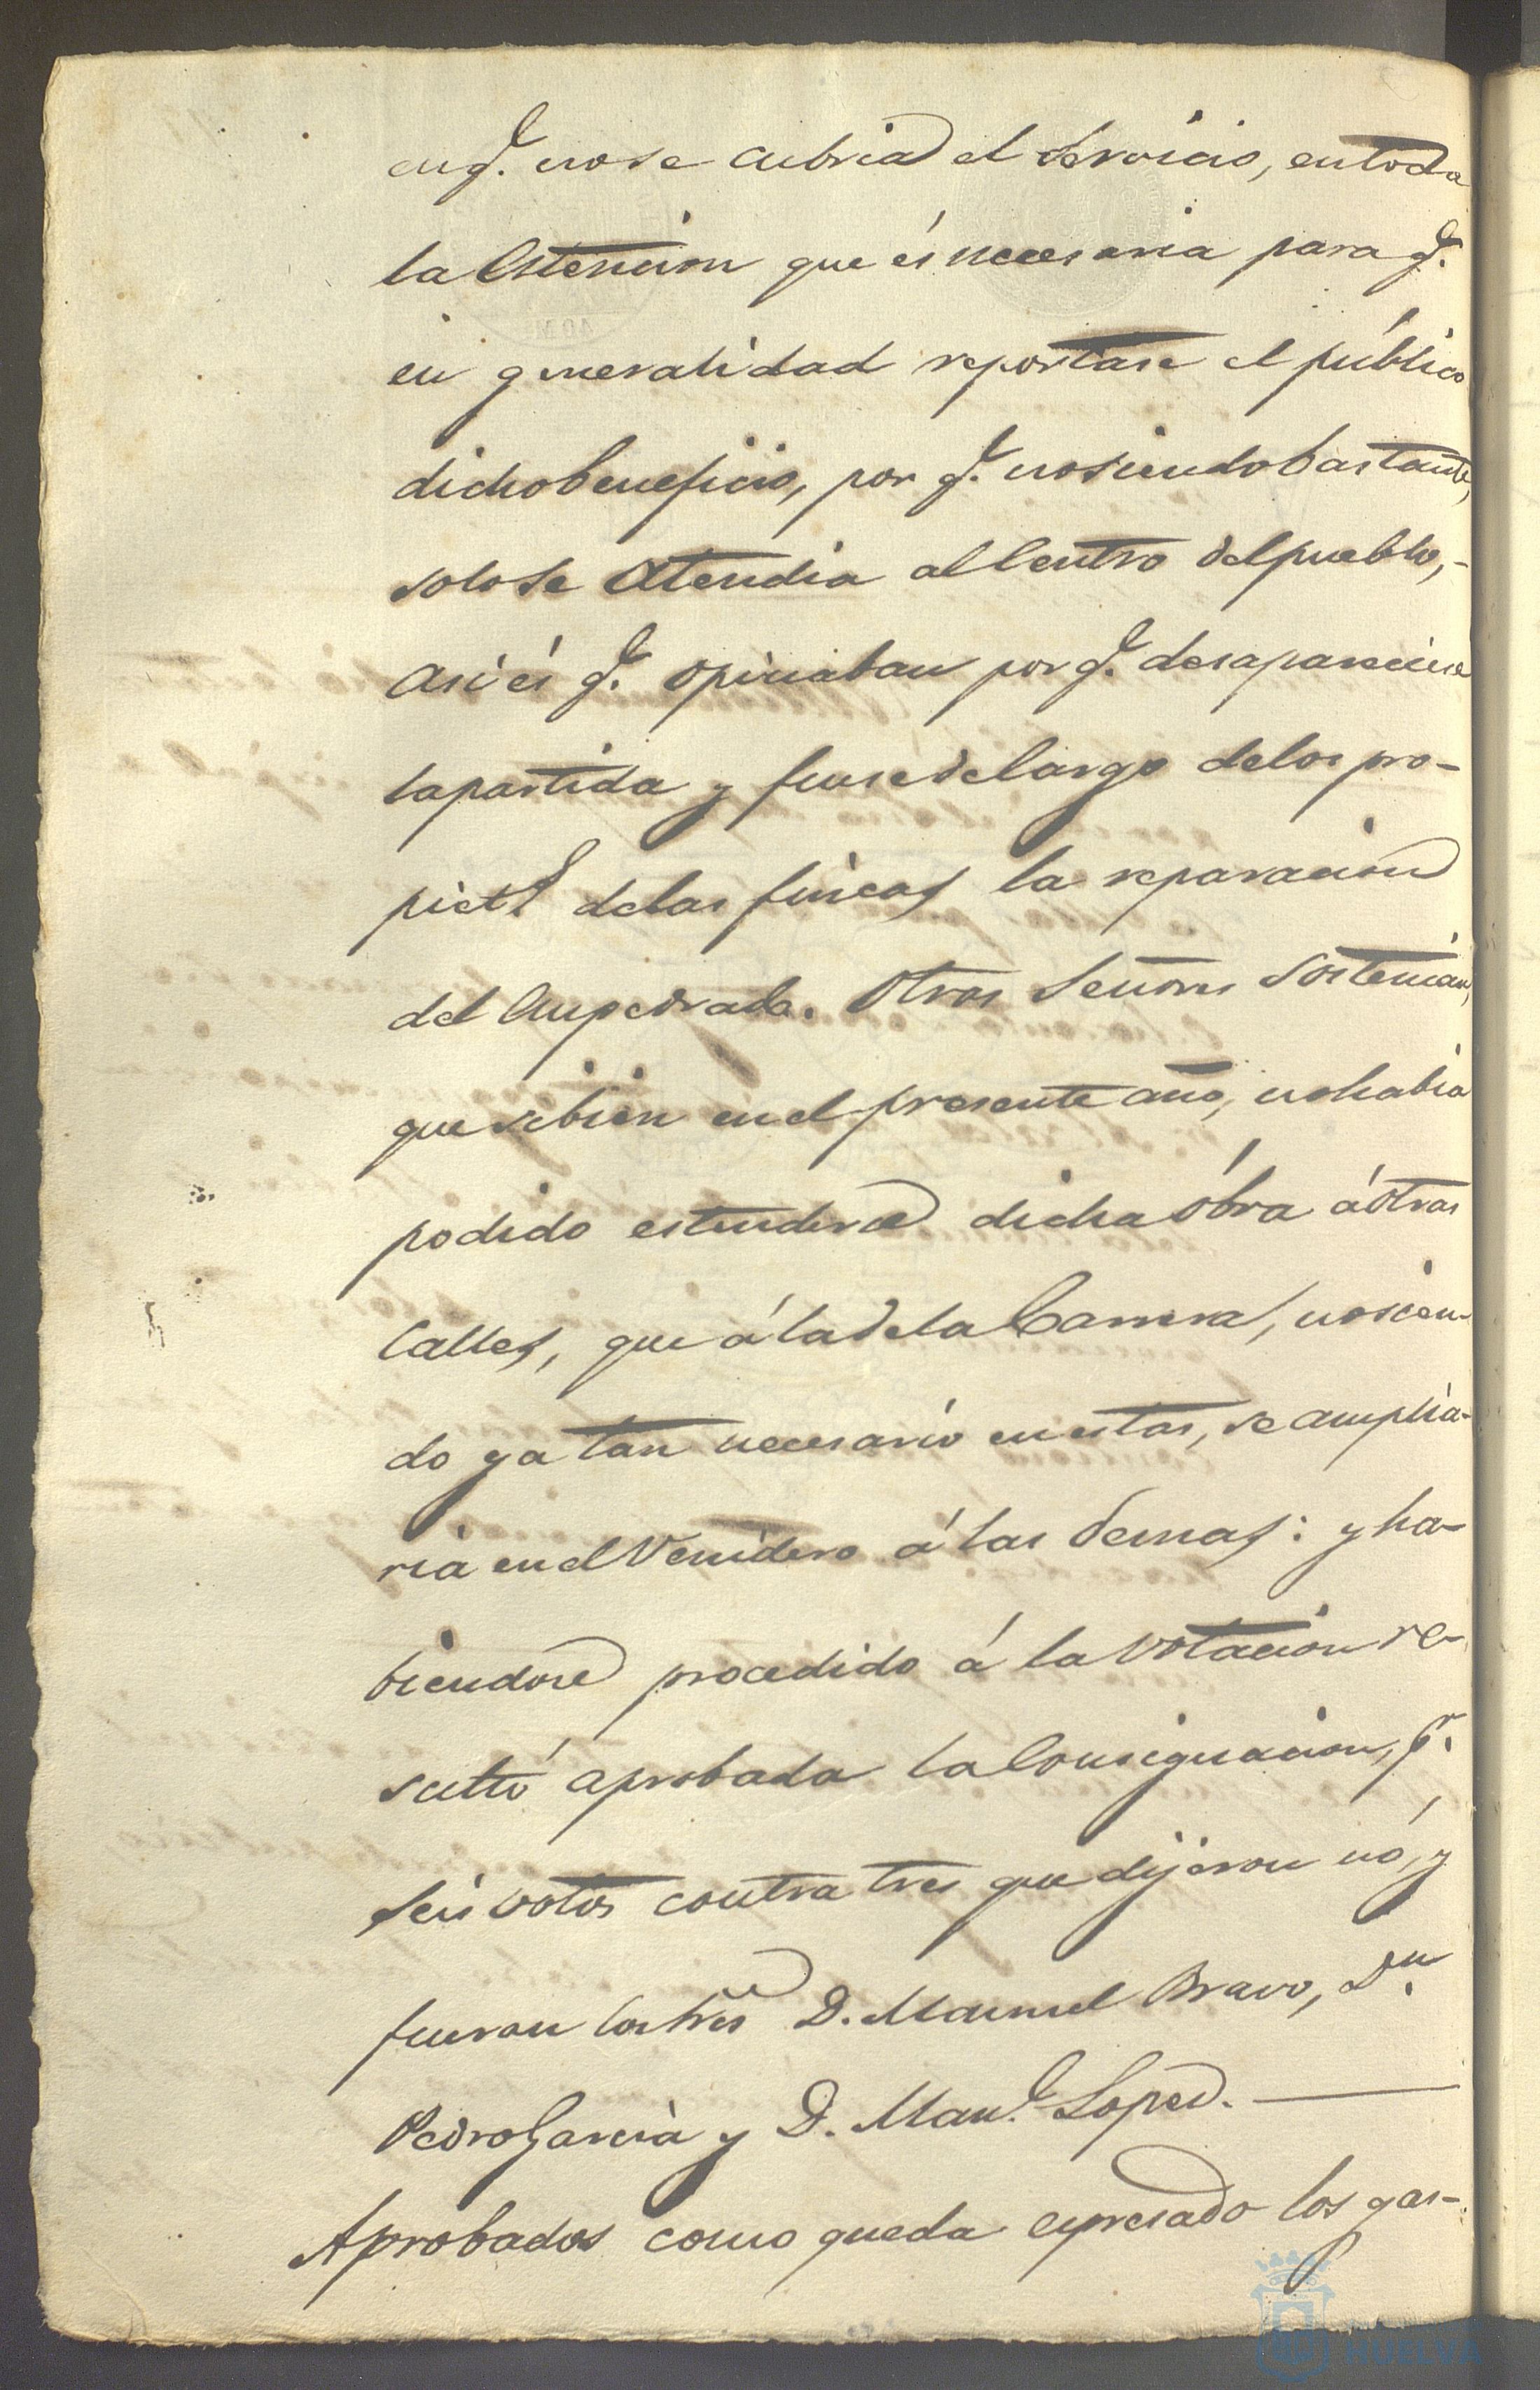 en q.e no se cubria el servicio, en toda
la Estencion que és necesaria para q.e
en generalidad reportase el público
dicho beneficio, por q.e no siendo bastante,
solo se atendia al Centro del pueblo,-
Asi és q.e opinaban por q.e desapareciese
la partida y fuese del cargo de los pro-
piet.s de las fincas la reparacion
del Empedrado. Otros Señores sostenian,
que si bien en el presente año, no habia
podido estenderse dicha óbra á otras
Calles, que á la de la Carrera, no sien-
do ya tan necesario en estas, se amplia-
ria en el Venidero á las demas: y ha-
biendose procedido á la votacion re-
sultó aprobada la Consignacion, p.r
seis votos contra tres que dijeron nó, y
fueron los Sres D. Manuel Bravo, D.n
Pedro Garcia y D. Man.l Lopez.
Aprobados como queda espresado los gas-
HUELVA